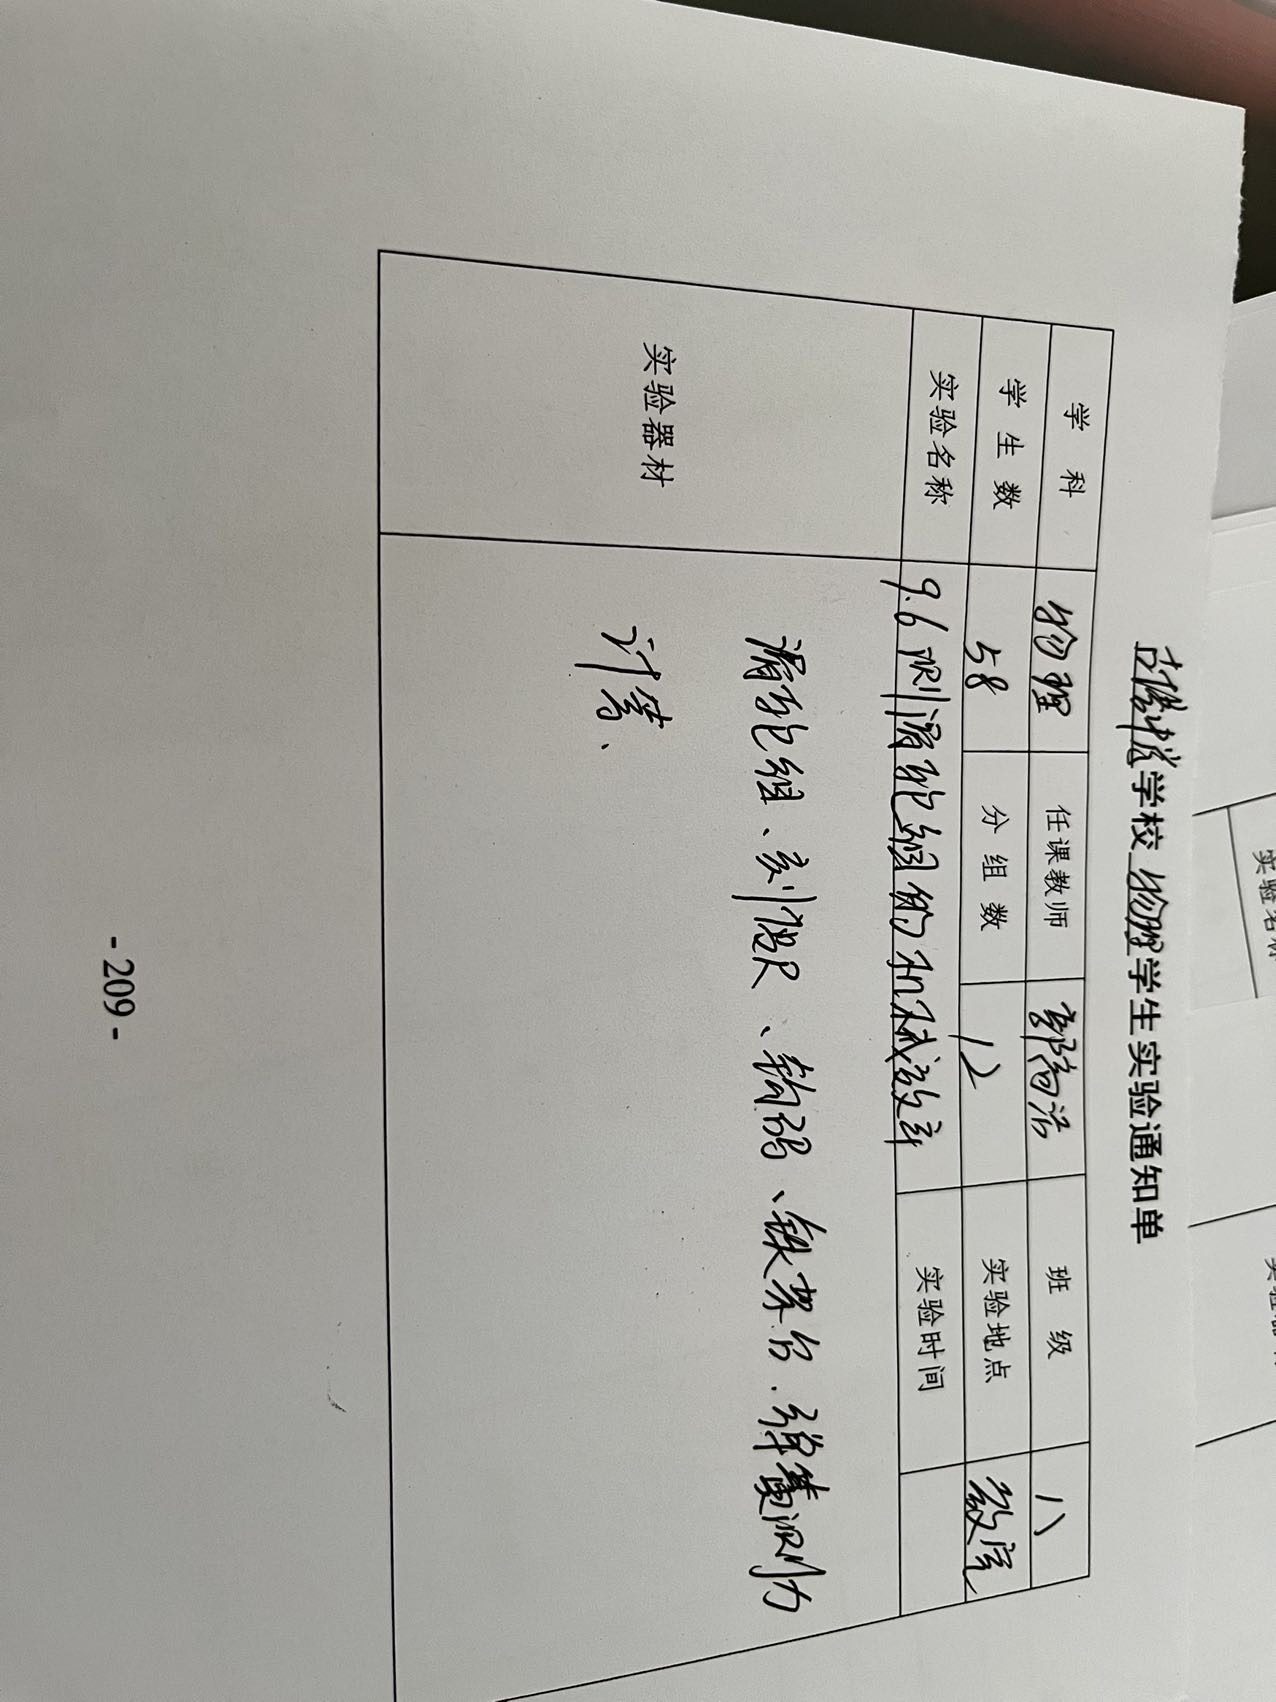 学校 物理 学生实验通知单
学科 物理 任课教师 班级 八
学生数 58 分组数 12 实验地点 教室
实验名称 9.6 测滑轮组的机械效率 实验时间
实验器材 滑轮组、刻度尺、钩码、铁架台.弹簧测力
计等、
- 209 -
实验名称